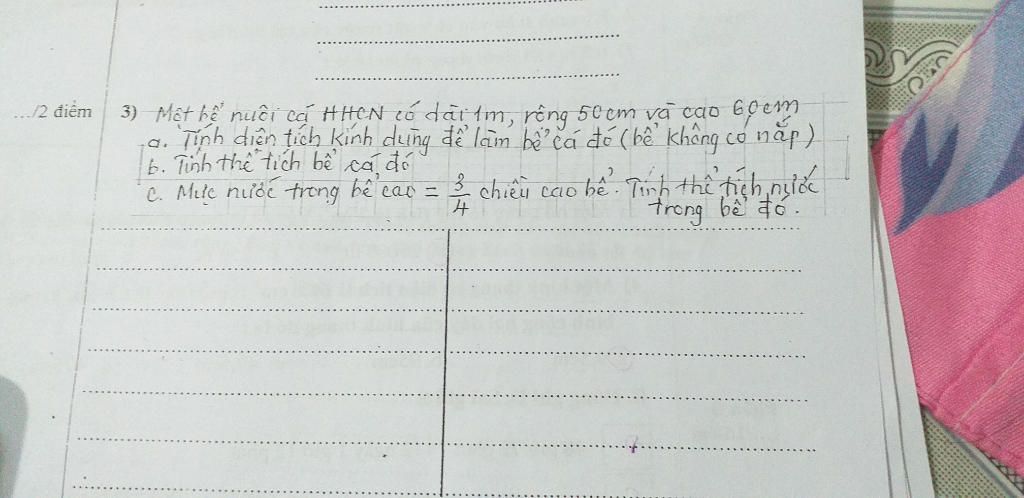 .../2 điểm 3) Một bể nuôi cá HHCN có dài 1m, rộng 50cm và cao 60cm
a. Tính diện tích kính dùng để làm bể cá đó (bể không có nắp)
b. Tính thể tích bể cá đó
c. Mực nước trong bể cao = 3/4 chiều cao bể. Tính thể tích nước
trong bể đó.